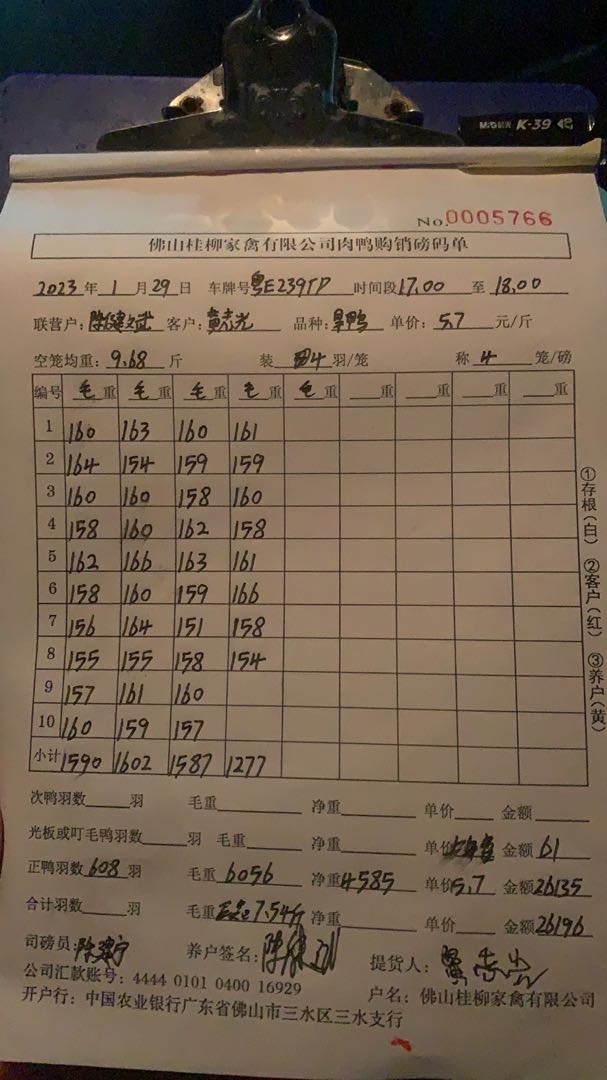 K-39
No.0005766
佛山桂柳家禽有限公司肉鸭购销磅码单
2023年1月29日 车牌号粤E239TD 时间段17.00至18.00
联营户: 客户:黄志光 品种: 单价:5.7元/斤
空笼均重:9.68斤 装4羽/笼 称4笼/磅
编号 毛重 毛重 毛重 毛重 毛重 重 重 重 重
1 160 163 160 161
2 164 154 159 159
3 160 160 158 160
4 158 160 162 158
5 162 166 163 161
6 158 160 159 166
7 156 164 151 158
8 155 155 158 154
9 157 161 160
10 160 159 157
小计 1590 1602 1587 1277
①存根(白) ②客户(红) ③养户(黄)
次鸭羽数 羽 毛重 净重 单价 金额
光板或叮毛鸭羽数 羽 毛重 净重 单价 金额61
正鸭羽数608羽 毛重6056 净重4585 单价5.7 金额26135
合计羽数 羽 毛重7.54斤 净重 金额26196
司磅员: 养户签名: 提货人:
公司汇款账号:4444 0101 0400 16929 户名:佛山桂柳家禽有限公司
开户行:中国农业银行广东省佛山市三水区三水支行